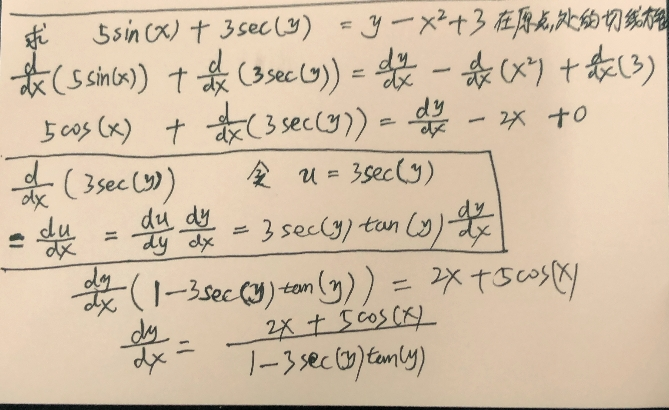 求 5sin(x) + 3sec(y) = y - x² + 3 在原点处的切线方程
d/dx (5sin(x)) + d/dx (3sec(y)) = dy/dx - d/dx (x²) + d/dx (3)
5cos(x) + d/dx (3sec(y)) = dy/dx - 2x + 0
d/dx (3sec(y)) 令 u = 3sec(y)
= du/dx = du/dy dy/dx = 3sec(y)tan(y) dy/dx
dy/dx (1-3sec(y)tan(y)) = 2x + 5cos(x)
dy/dx = 2x + 5cos(x) / 1-3sec(y)tan(y)